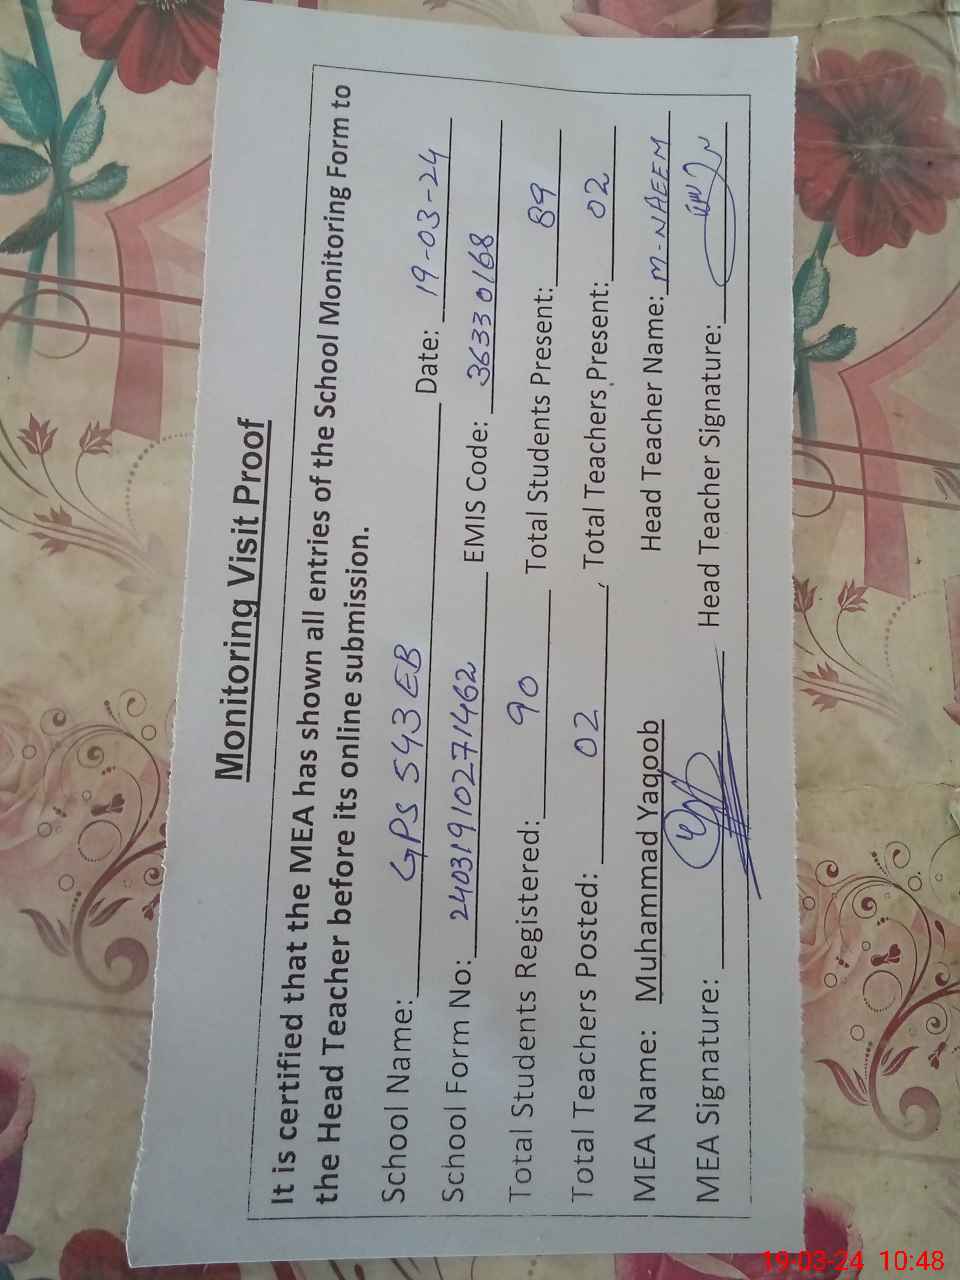 Monitoring Visit Proof
It is certified that the MEA has shown all entries of the School Monitoring Form to
the Head Teacher before its online submission.
School Name: GPS 543 EB Date: 19-03-24
School Form No: 24031910271462 EMIS Code: 36330168
Total Students Registered: 90 Total Students Present: 89
Total Teachers Posted: 02, Total Teachers Present: 02
MEA Name: Muhammad Yaqoob Head Teacher Name: M-NAEEM
MEA Signature: Head Teacher Signature:
19-03-24 10:48